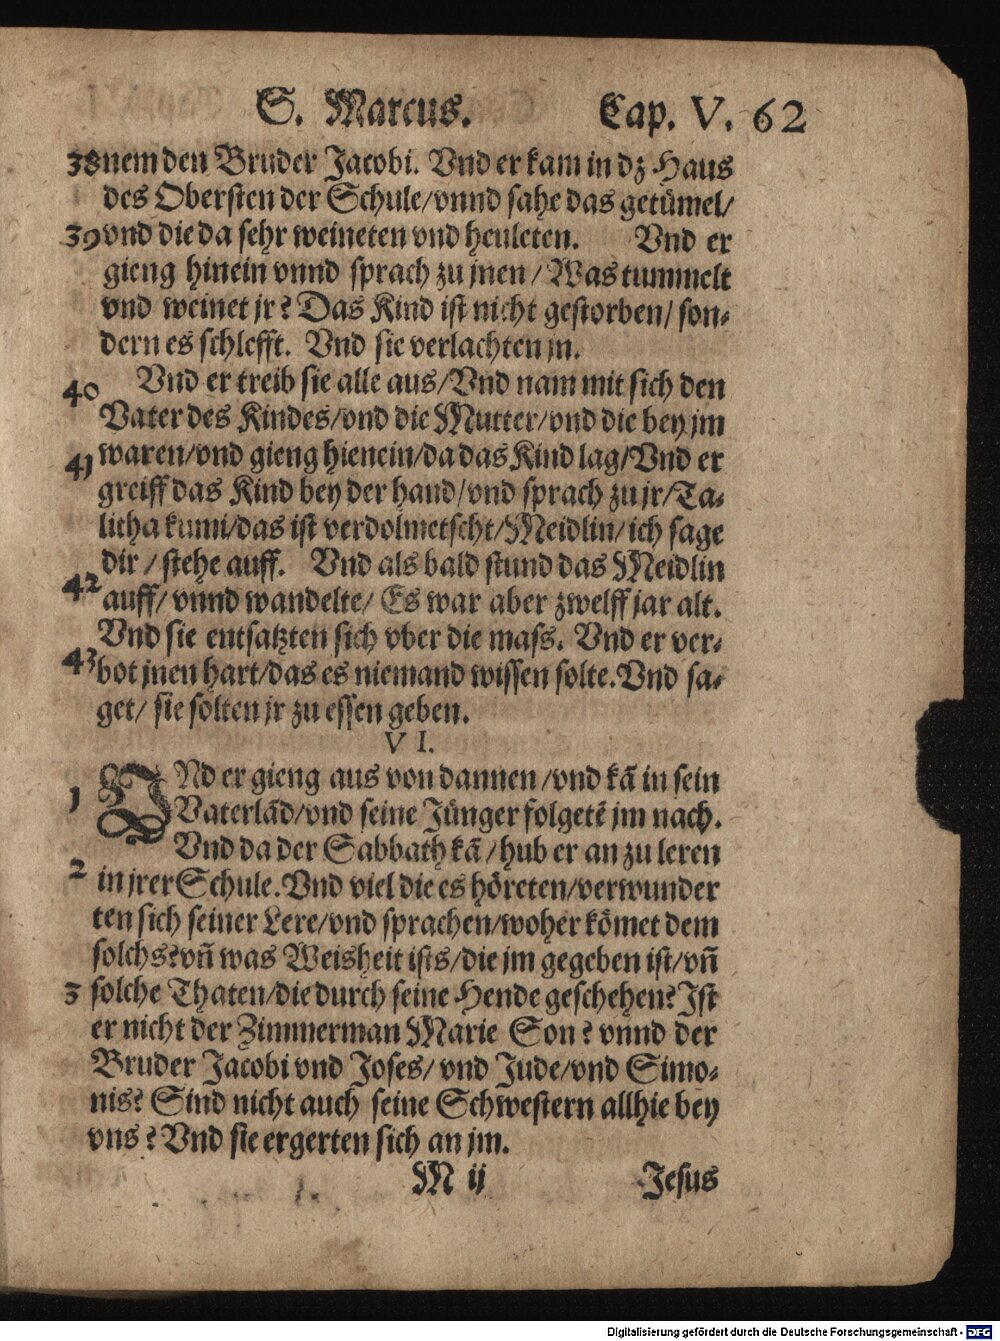 S. Marcus. Cap. V. 62
38 nem den Bruder Jacobi. Vnd er kam in dz Haus
des Obersten der Schule/vnnd sahe das getümel/
39 vnd die da sehr weineten vnd heuleten. Vnd er
gieng hinein vnnd sprach zu jnen/Was tummelt
vnd weinet jr? Das Kind ist nicht gestorben/son-
dern es schlefft. Vnd sie verlachten jn.
40 Vnd er treib sie alle aus/Vnd nam mit sich den
Vater des Kindes/vnd die Mutter/vnd die bey jm
41 waren/vnd gieng hienein/da das Kind lag/Vnd er
greiff das Kind bey der hand/vnd sprach zu jr/Ta-
litha kumi/das ist verdolmetscht/Meidlin/ich sage
dir/stehe auff. Vnd als bald stund das Meidlin
42 auff/vnnd wandelte/Es war aber zwelff jar alt.
Vnd sie entsatzten sich vber die mass. Vnd er ver-
43 bot jnen hart/das es niemand wissen solte. Vnd sa-
get/sie solten jr zu essen geben.
VI.
1 VNd er gieng aus von dannen/vnd kã in sein
Vaterlãd/vnd seine Jünger folgetẽ jm nach.
Vnd da der Sabbath kã/hub er an zu leren
2 in jrer Schule. Vnd viel die es höreten/verwunder
ten sich seiner Lere/vnd sprachen/woher kõmet dem
solchs? vñ was Weisheit ists/die jm gegeben ist/vñ
3 solche Thaten/die durch seine Hende geschehen? Ist
er nicht der Zimmerman Marie Son? vnnd der
Bruder Jacobi vnd Joses/vnd Jude/vnd Simo-
nis? Sind nicht auch seine Schwestern allhie bey
vns? Vnd sie ergerten sich an jm.
M ij Jesus
Digitalisierung gefördert durch die Deutsche Forschungsgemeinschaft - DFG